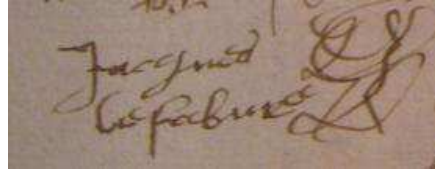 Jacques
lefebure